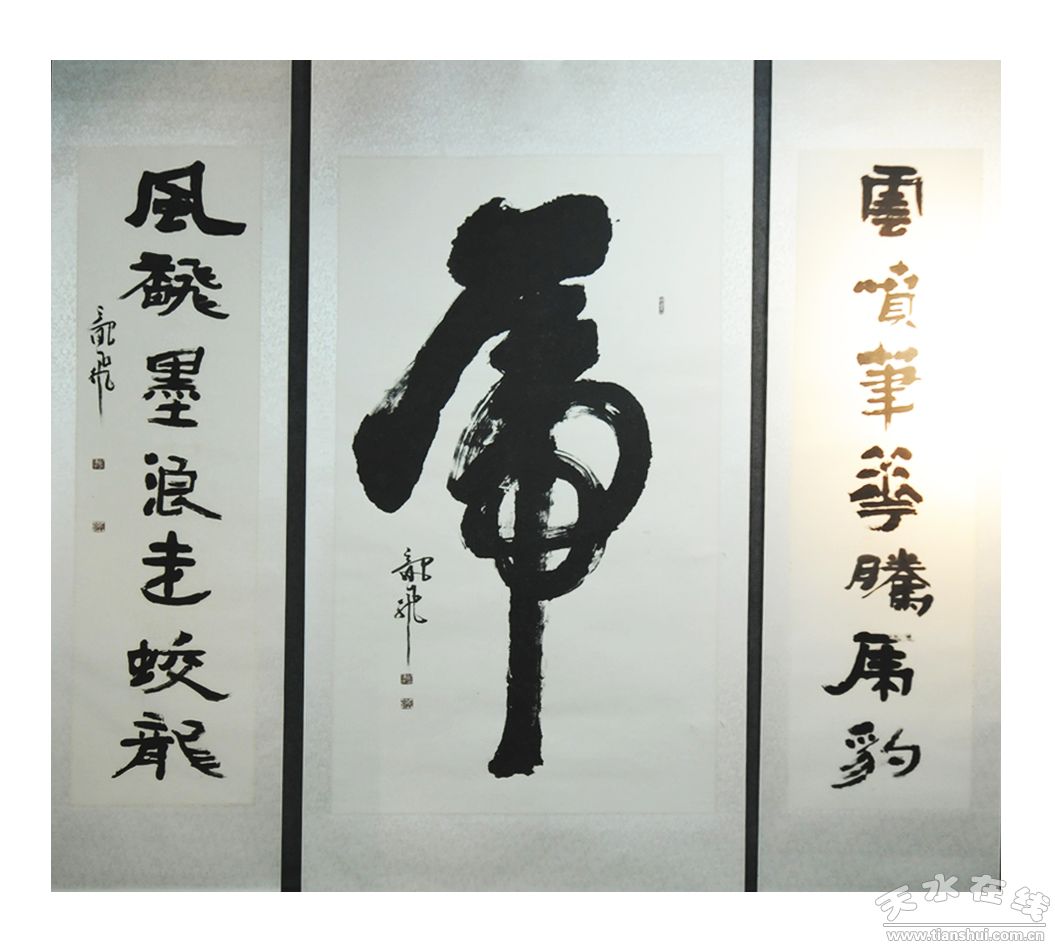 雲噴筆華騰虎豹
虎
龍飛
風飜墨浪走蛟龍
龍飛
天水在线
www.tianshui.com.cn